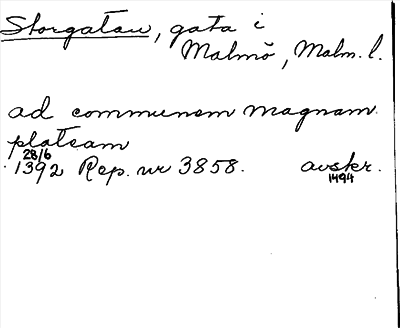 Storgatan, gata i
Malmö, Malm. l.
ad communem magnam
plateam
28/6
1392 Rep. nr 3858. avskr.
1494